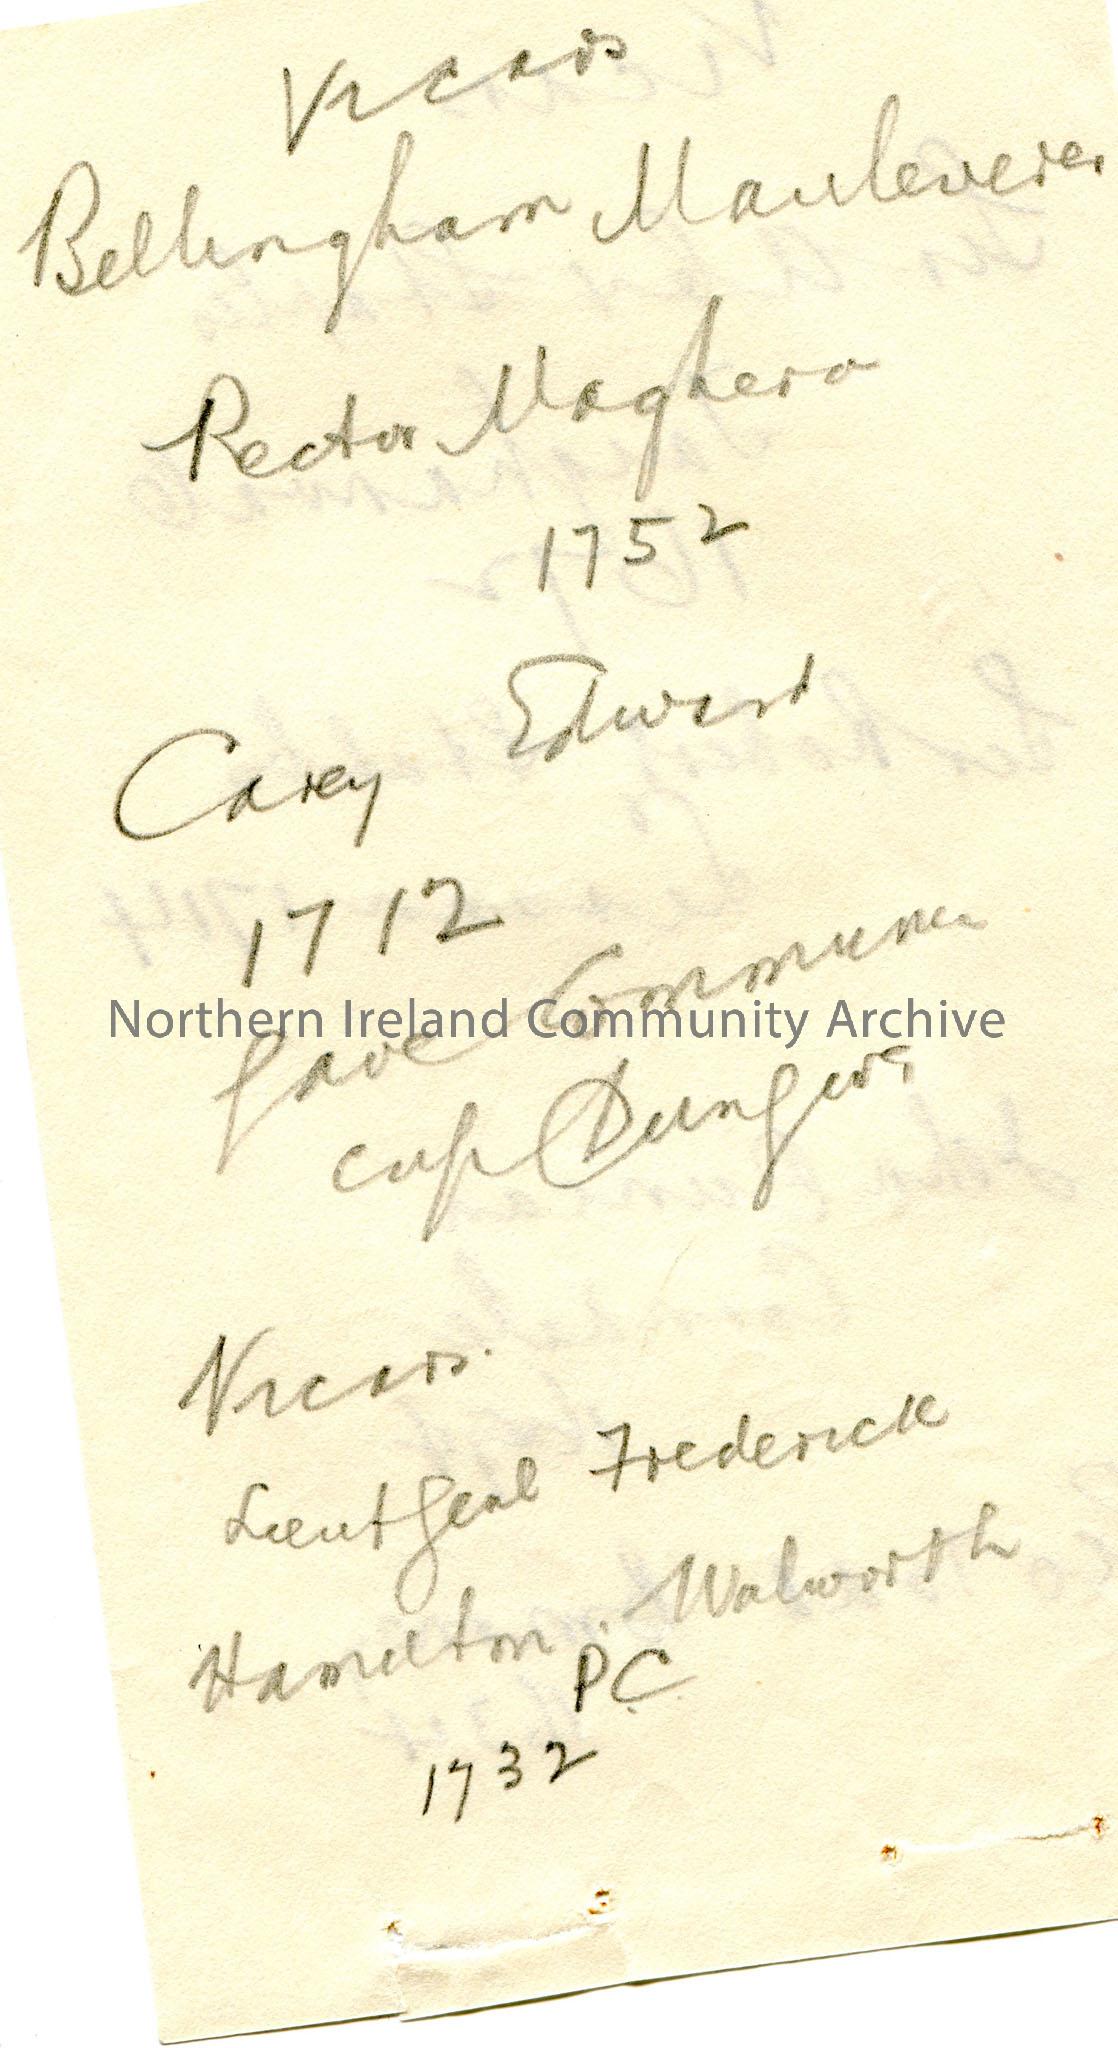 Vicars
Bellingham Mauleverer
Rector Maghera
1752
Carey Edward
1712
gave Commun
cup Dungiven
Northern Ireland Community Archive
Vicars.
Lieut Genl Frederick
Hamilton. Walworth
P.C.
1732